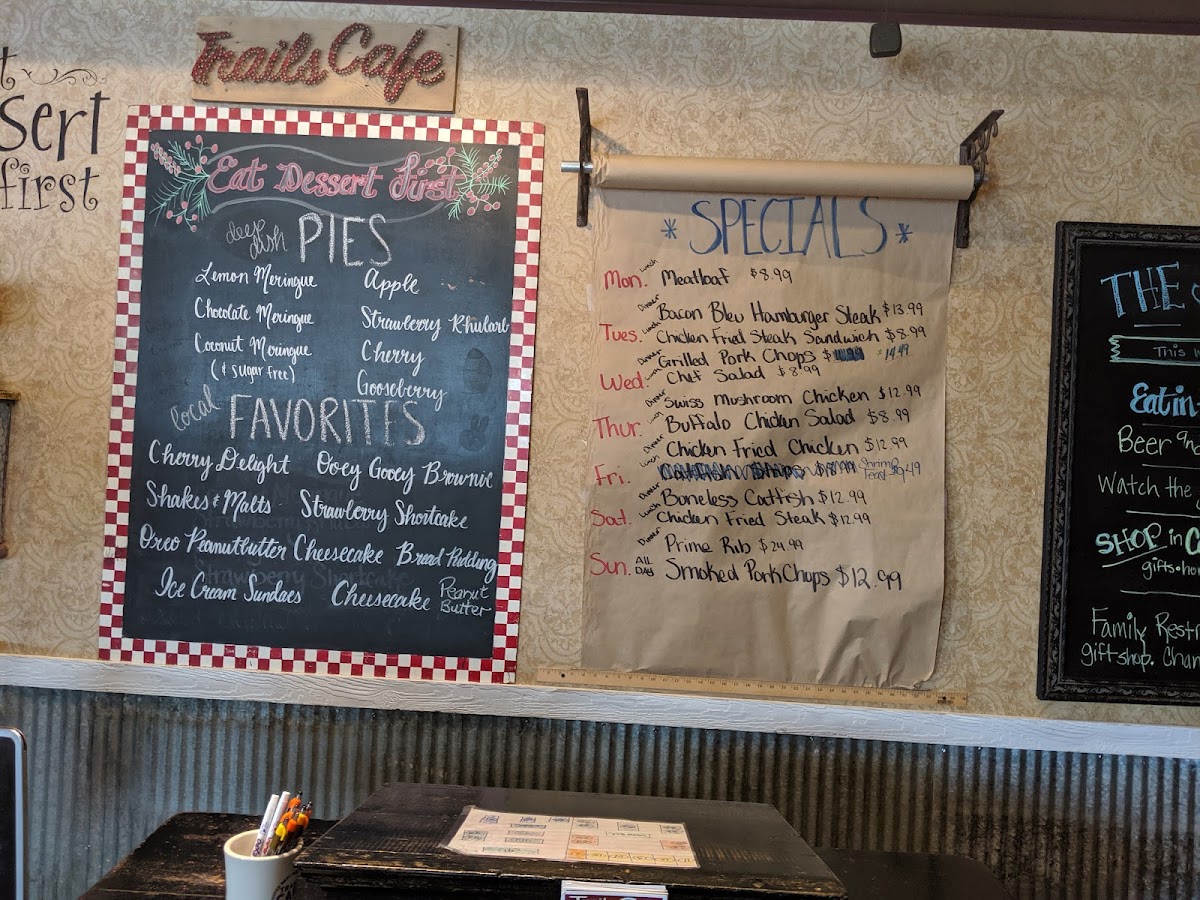 t
sert
first
Trails Cafe
Eat Dessert First
deep dish PIES
Lemon Meringue Apple
Chocolate Meringue Strawberry Rhubarb
Coconut Meringue Cherry
(& sugar free) Gooseberry
local FAVORITES
Cherry Delight Ooey Gooey Brownie
Shakes & Malts Strawberry Shortcake
Oreo Peanutbutter Cheesecake Bread Pudding
Ice Cream Sundaes Cheesecake Peanut Butter
* SPECIALS *
Mon. Lunch Meatloaf $8.99
Dinner Bacon Bleu Hamburger Steak $13.99
Tues. Lunch Chicken Fried Steak Sandwich $8.99
Dinner Grilled Pork Chops $ 14.49
Wed. Lunch Chef Salad $8.99
Dinner Swiss Mushroom Chicken $12.99
Thur. Lunch Buffalo Chicken Salad $8.99
Dinner Chicken Fried Chicken $12.99
Fri. Lunch Shrimp Feast $9.49
Dinner Boneless Catfish $12.99
Sat. Lunch Chicken Fried Steak $12.99
Dinner Prime Rib $24.99
Sun. ALL DAY Smoked Pork Chops $12.99
THE
This
Eat in
Beer and
Watch the
SHOP in
gifts • ho
Family Rest
giftshop. Cham